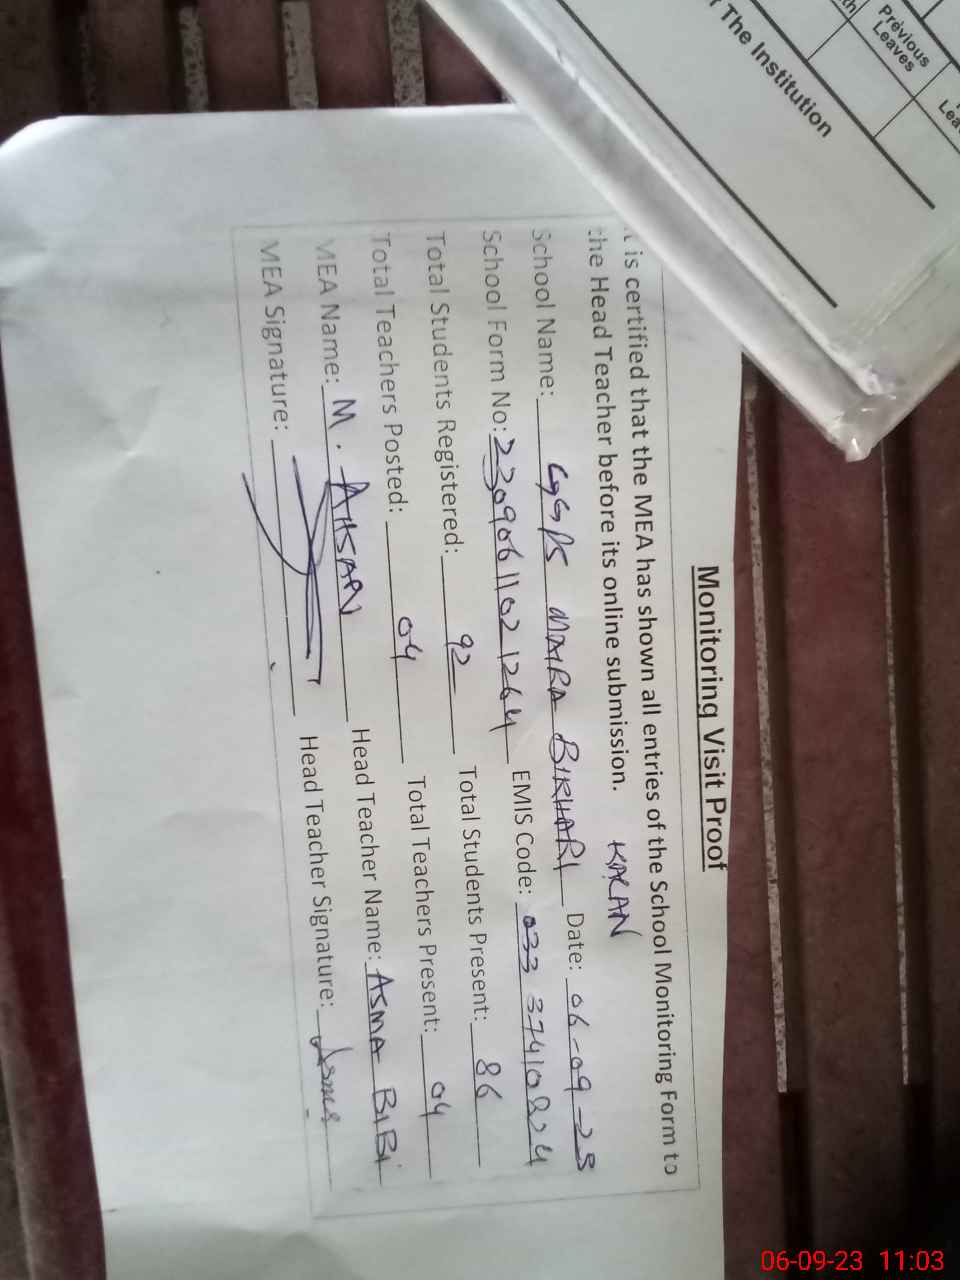 Monitoring Visit Proof
is certified that the MEA has shown all entries of the School Monitoring Form to
the Head Teacher before its online submission.
KARAN
School Name: GGPS MAIRA BIKHARI Date: 06-09-23
School Form No: 23090611021264 EMIS Code: 37410824
Total Students Registered: 92 Total Students Present: 86
Total Teachers Posted: 04 Total Teachers Present: 04
MEA Name: M. AHSAN Head Teacher Name: ASMA BIBI
MEA Signature: Head Teacher Signature: Asma
The Institution
Previous
Leaves
06-09-23 11:03